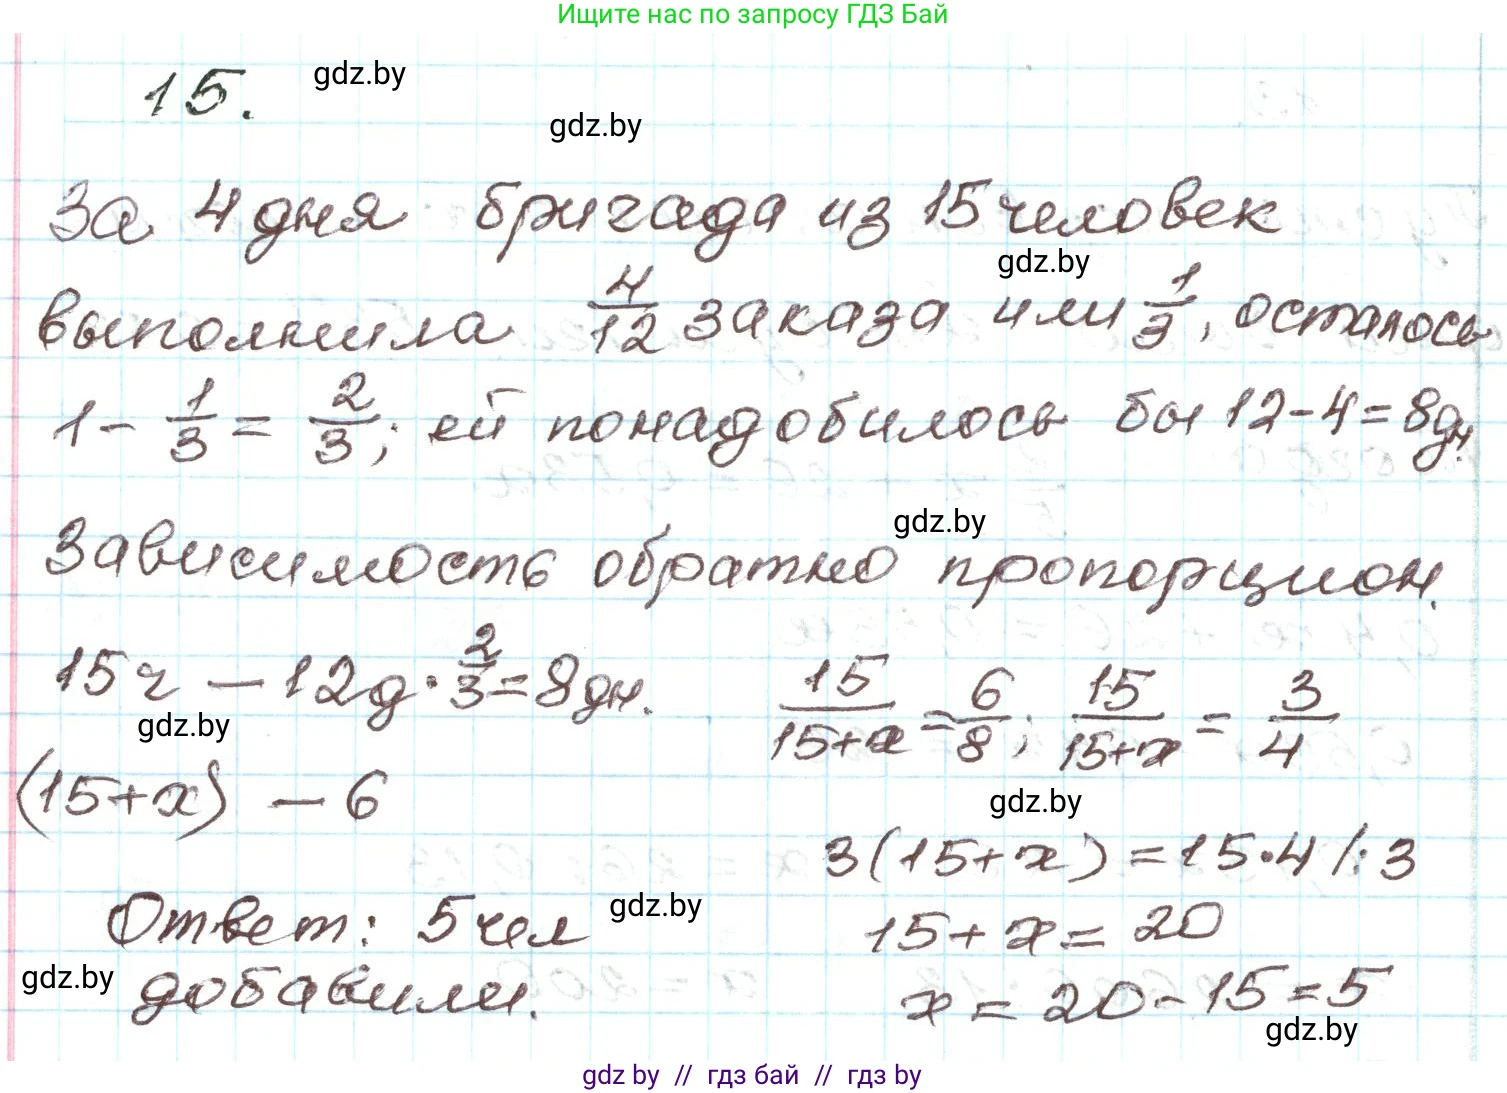 Ищите нас по запросу ГДЗ Бай
15.
gdz.by
gdz.by
За 4 дня бригада из 15 человек
gdz.by
выполнила 4/12 заказа или 1/3, осталось
1 - 1/3 = 2/3; ей понадобилось бы 12-4=8дн.
gdz.by
Зависимость обратно пропорцион.
15ч — 12д · 2/3 = 8дн.
15/(15+x) = 6/8; 15/(15+x) = 3/4
gdz.by
(15+x) — 6
gdz.by
3(15+x) = 15·4 /:3
Ответ: 5 чел
gdz.by
15+x = 20
gdz.by
добавили.
x = 20-15=5
gdz.by
gdz by // гдз бай // гдз by